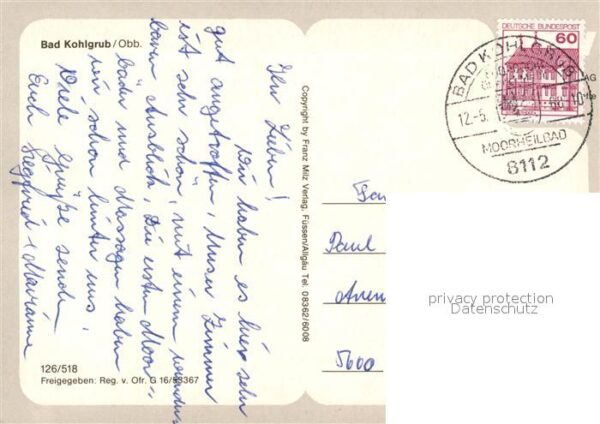 Bad Kohlgrub/Obb.
Ihr Lieben!
Wir haben es hier sehr
gut angetroffen, unser Zimmer
ist sehr schön, mit einem
barn Ausblick, Die ersten Moor-
bäder und Massagen haben
wir schon hinter uns.
Viele Grüße senden
Euch Siegfried + Marianne
126/518
Freigegeben: Reg. v. Ofr. G 16/53367
Copyright by Franz Milz Verlag, Füssen/Allgäu Tel. 08362/6008
DEUTSCHE BUNDESPOST
60
BAD KOHLGRUB
12-5.
-10
MOORHEILBAD
8112
AG
Fam
Paul
5600
privacy protection
Datenschutz